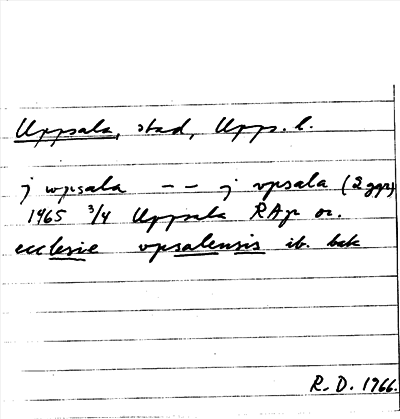 Uppsala, stad, Upps. l.
j wpsala -- j vpsala (2 ggr)
1465 3/4 Uppsala RAp or.
ecclesie vpsalensis ib. bak
R.D. 1966.